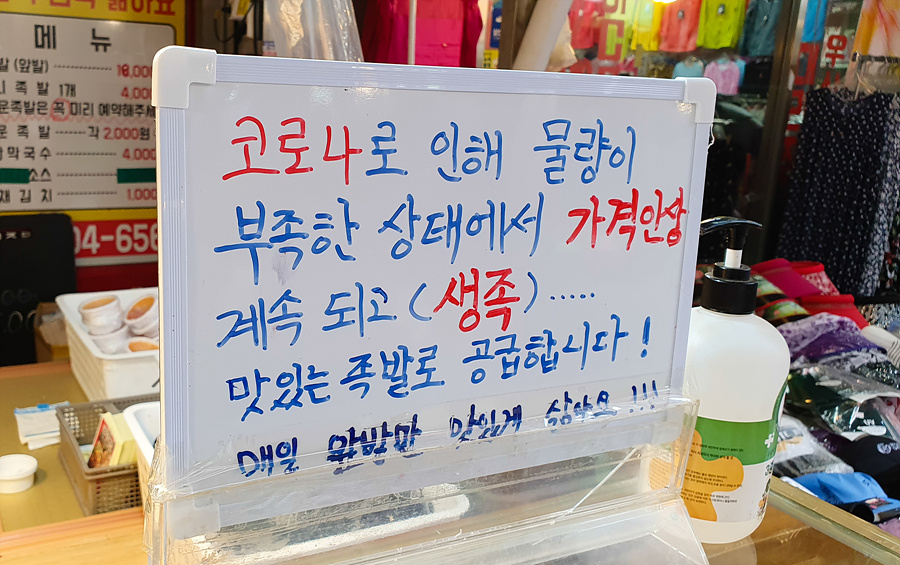 메뉴
발 (앞발) 18,000
니족발 1개 4,000
운족발은 꼭 미리 예약해주세
운족발 각 2,000원
막국수 4,000
소스
재김치 1,000
04-656
코로나로 인해 물량이
부족한 상태에서 가격인상
계속 되고 (생족).....
맛있는 족발로 공급합니다!
매일 앞발만 맛있게 삶아요!!!